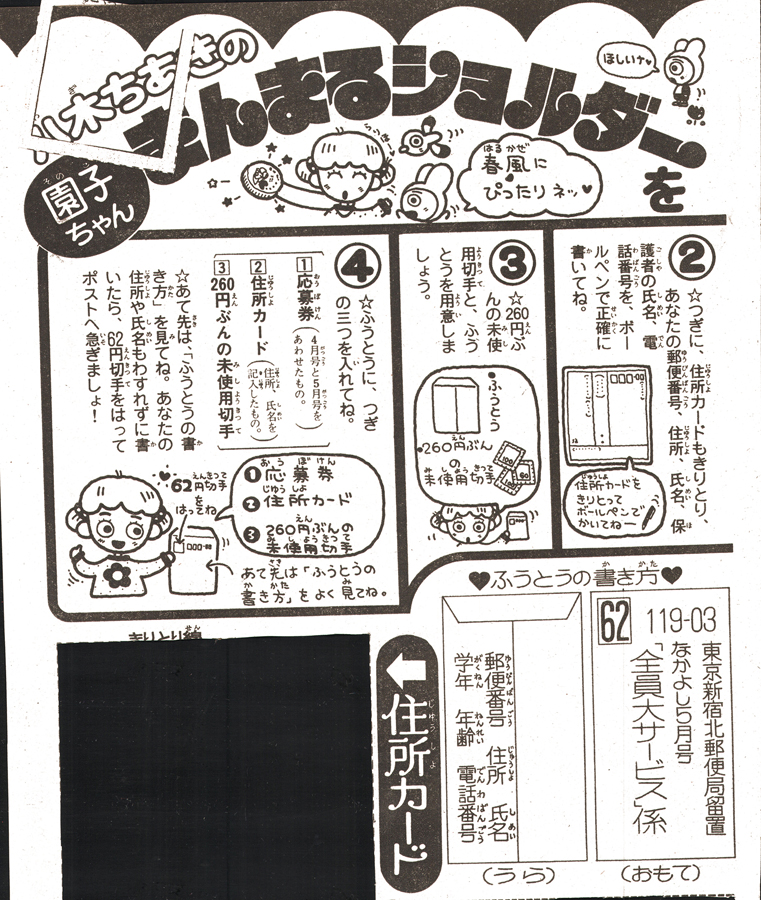 八木ちあきの
まんまるショルダー
を
園子
ちゃん
ほしいナ♥
春風に
ぴったりネッ♥
②
☆つぎに、住所カードもきりとり、
あなたの郵便番号、住所、氏名、保
護者の氏名、電
話番号を、ボー
ルペンで正確に
書いてね。
住所カードを
きりとって
ボールペンで
かいてねー
③
☆260円ぶ
んの未使
用切手と、ふう
とうを用意しま
しょう。
・ふうとう
・260円ぶん
の
未使用切手
④
☆ふうとうに、つぎ
の三つを入れてね。
1 応募券
(4月号と5月号を
あわせたもの。)
2 住所カード
(住所、氏名を
記入したもの。)
3 260円ぶんの未使用切手
☆あて先は、「ふうとうの書
き方」を見てね。あなたの
住所や氏名もわすれずに書
いたら、62円切手をはって
ポストへ急ぎましょ！
♥62円切手
を
はってね
❶応募券
❷住所カード
❸260円ぶんの
未使用切手
あて先は「ふうとうの
書き方」をよく見てね。
♥ふうとうの書き方♥
62
119-03
東京新宿北郵便局留置
なかよし5月号
「全員大サービス」係
(おもて)
郵便番号 住所 氏名
学年 年齢 電話番号
(うら)
←住所カード
きりとり線